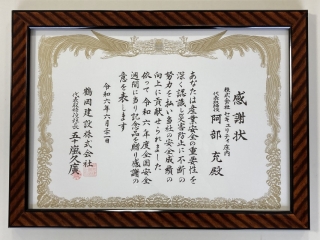 感謝状
株式会社セキュリティ庄内
代表取締役 阿部 充殿
あなたは産業安全の重要性を
深く認識し災害防止に不断の
努力を払い当社の安全成績の
向上に貢献せられました
依って令和六年度全国安全
週間に当り記念品を贈り感謝の
意を表します
令和六年六月二十一日
鶴岡建設株式会社
代表取締役社長 五十嵐久廣